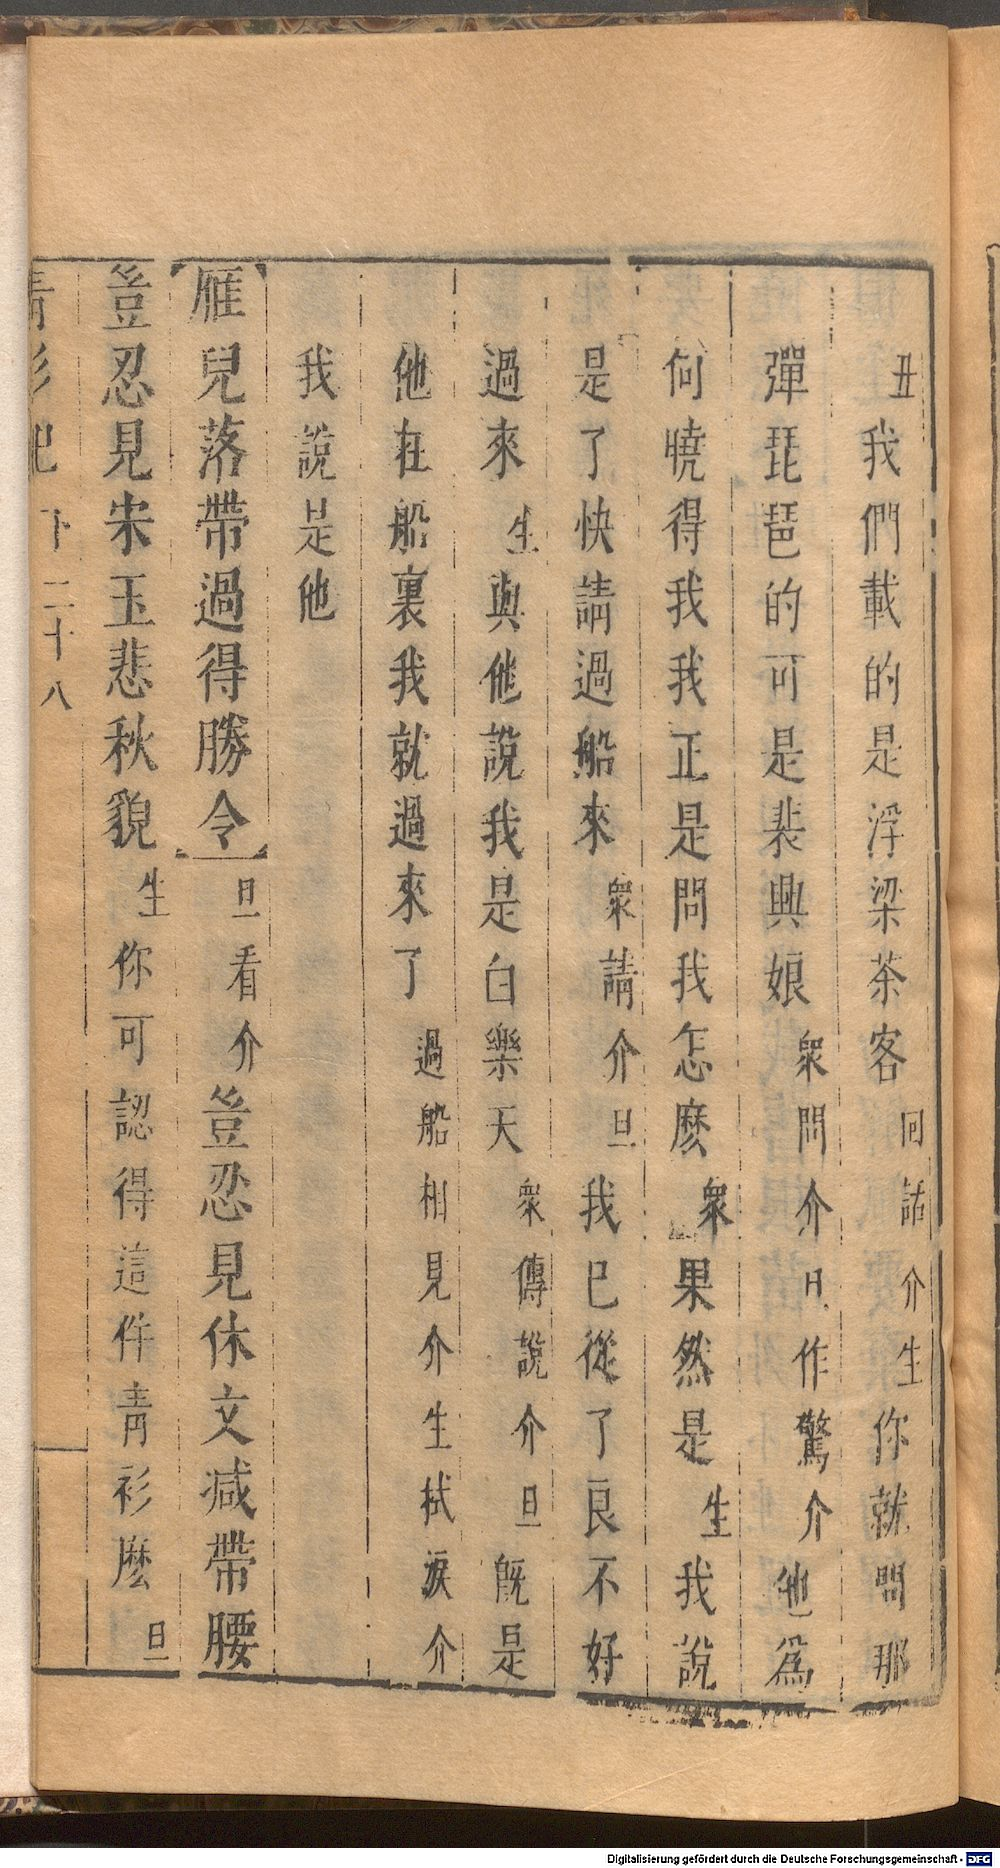 丑我們載的是浮梁茶客回話介生你就問那
彈琵琶的可是裴興娘衆問介旦作驚介他爲
何曉得我我正是問我怎麽衆果然是生我說
是了快請過船來衆請介旦我已從了良不好
過來生與他說我是白樂天衆傳說介旦旣是
他在船裏我就過來了過船相見介生拭淚介
我說是他
【雁兒落帶過得勝令】旦看介豈忍見休文减帶腰
豈忍見宋玉悲秋貌生你可認得這件靑衫麽旦
靑衫記 下 二十八
Digitalisierung gefördert durch die Deutsche Forschungsgemeinschaft - DFG